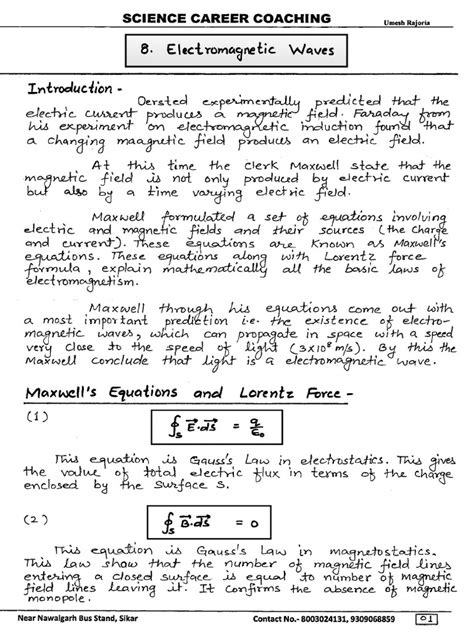 SCIENCE CAREER COACHING
Umesh Rajoria
8. Electromagnetic Waves
Introduction -
Oersted experimentally predicted that the
electric current produces a magnetic field. Faraday from
his experiment on electromagnetic induction found that
a changing maagnetic field produces an electric field.
At this time the Clerk Maxwell state that the
magnetic field is not only produced by electric current
but also by a time varying electric field.
Maxwell formulated a set of equations involving
electric and magnetic fields and their sources (the charge
and current). These equations are known as Maxwell's
equations. These equations along with Lorentz force
formula, explain mathematically all the basic laws of
electromagnetism.
Maxwell through his equations come out with
a most important prediction i.e. the existence of electro-
magnetic waves, which can propagate in space with a speed
very close to the speed of light (3×10⁸ m/s). By this the
Maxwell conclude that light is a electromagnetic wave.
Maxwell's Equations and Lorentz Force -
(1)
∮ₛ E⃗.ds⃗ = q/ε₀
This equation is Gauss's Law in electrostatics. This gives
the value of total electric flux in terms of the charge
enclosed by the surface S.
(2)
∮ₛ B⃗.ds⃗ = 0
This equation is Gauss's Law in magnetostatics.
This law show that the number of magnetic field lines
entering a closed surface is equal to number of magnetic
field lines leaving it. It confirms the absence of magnetic
monopole.
Near Nawalgarh Bus Stand, Sikar
Contact No.- 8003024131, 9309068859
01